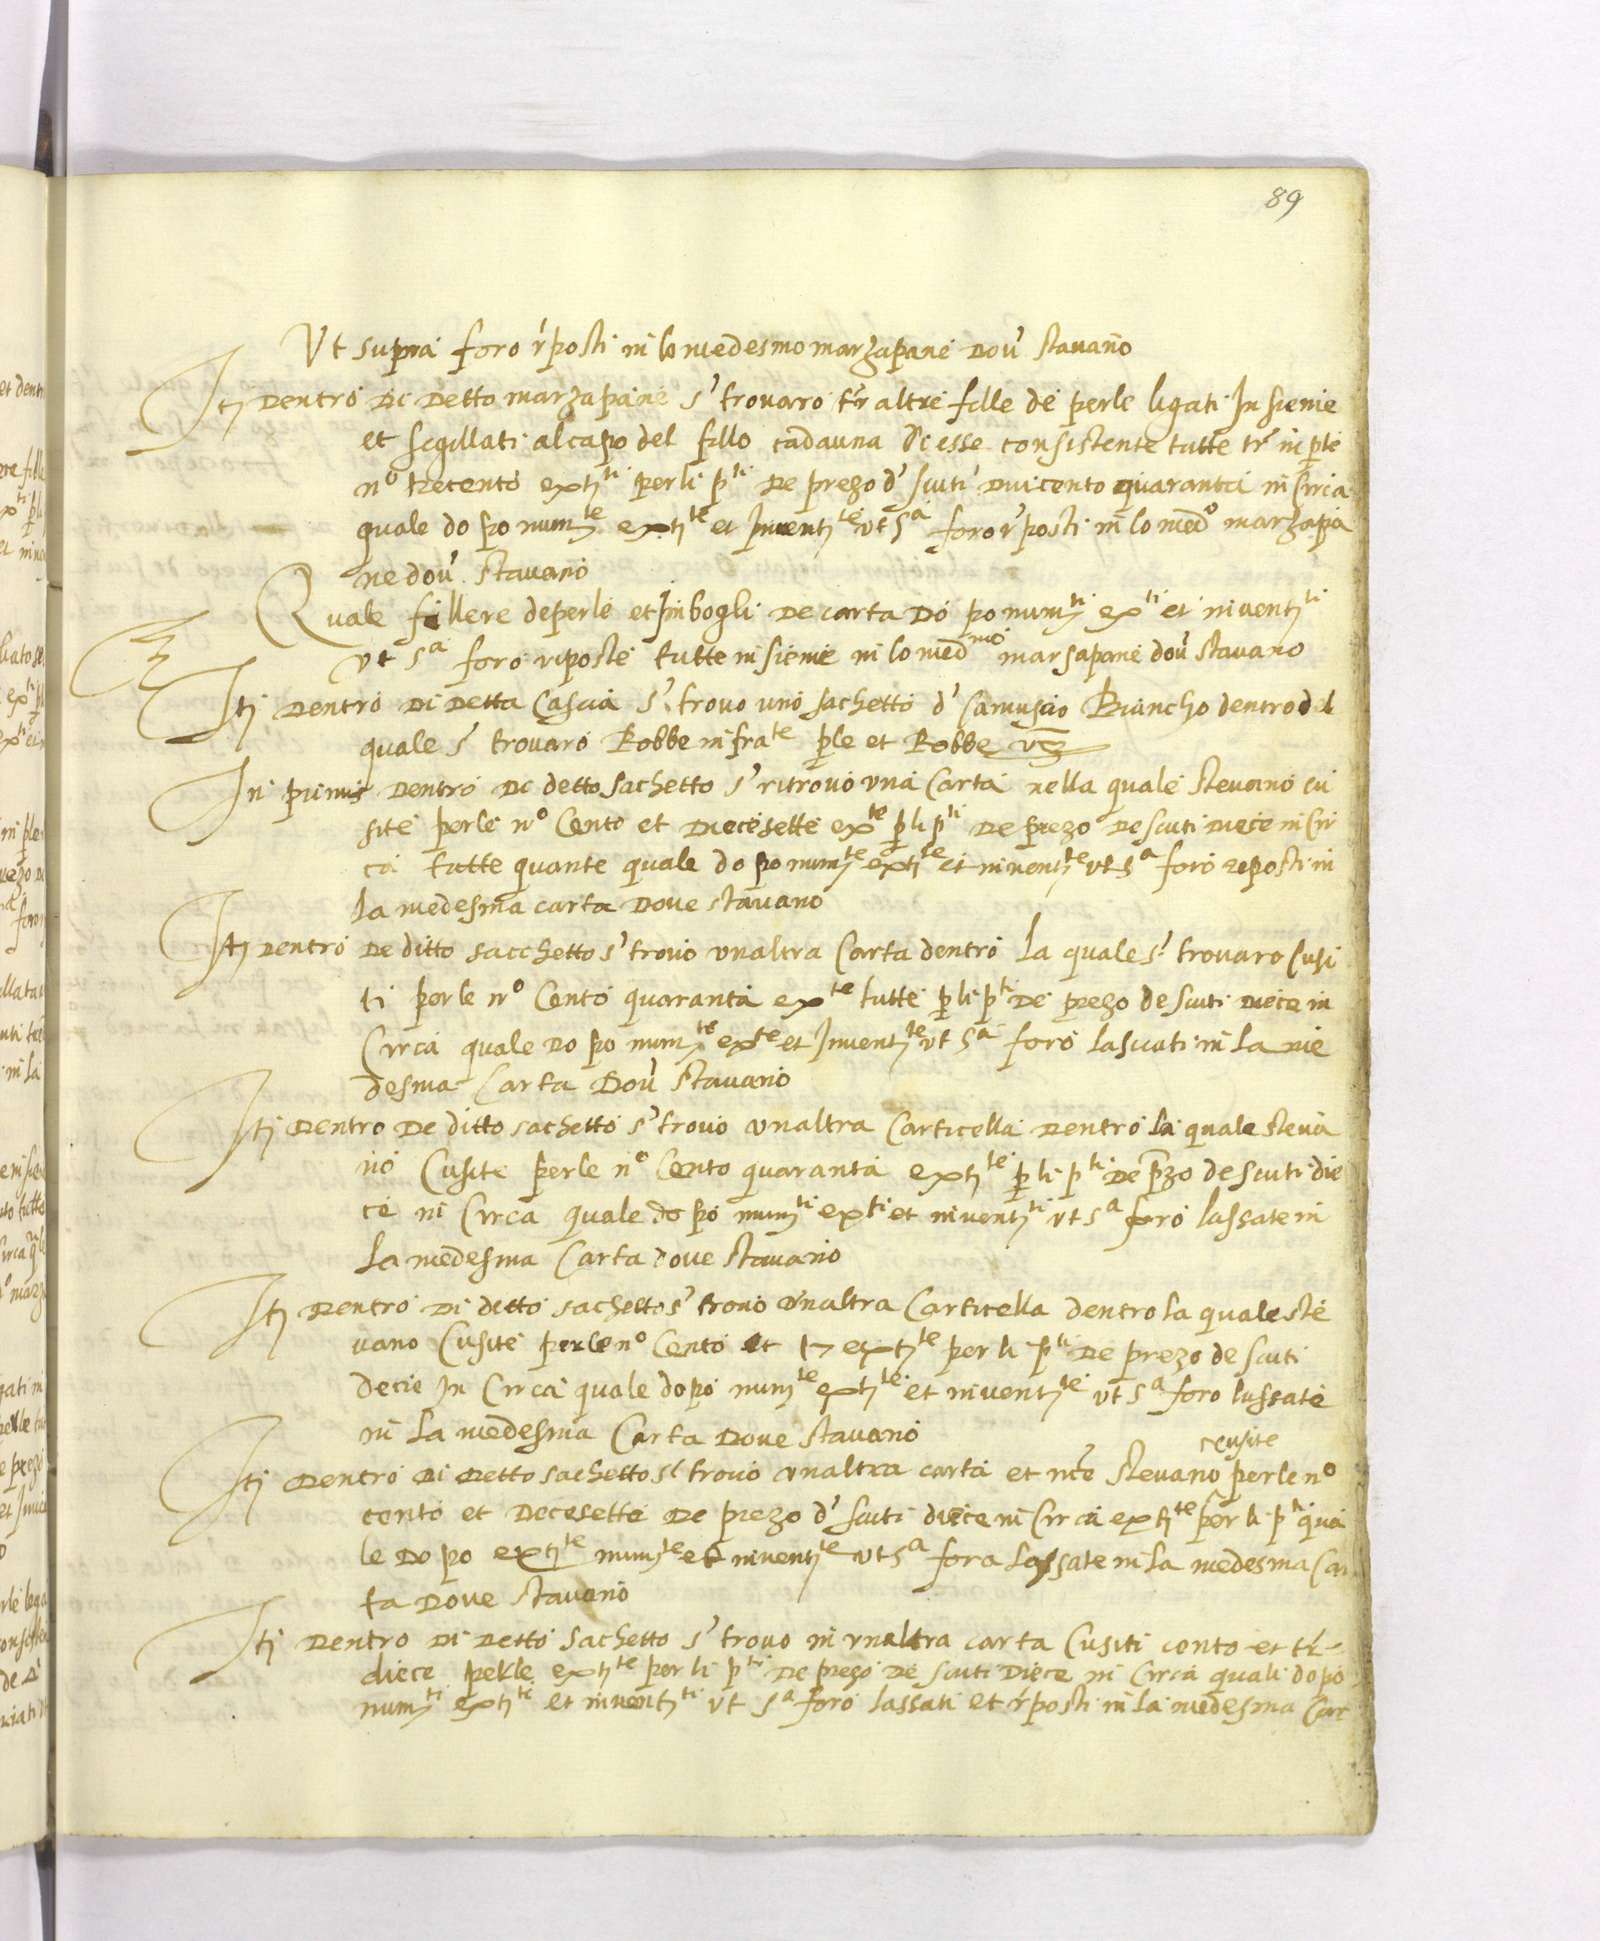 89
Vt supra foro rposti in lo medesmo marzapane dou' stauano
It dentro di detto marzapane s' trouaro tr' altre fille de perle ligati Insieme
et sigillati al capo del fillo cadauna di esse consistente tutte tr' in perle
n° trecento ext^ti per li p^ti de prezo d' scuti duicento quaranta in Circa
quale dopo num^te ext^te et Inuent^te vt s^a foro r'posti in lo med° marzapa
ne dou' stauano
Quale fillere de perle et Imbogli de carta dopo num^ti ex^ti et inuent^ti
vt s^a foro riposte tutte insieme in lo med^mo marsapane dou' stauano
It dentro di detta Cascia s' trouo uno sachetto d' Camuscio Biancho dentro del
quale s' trouaro Robbe infra^te perle et Robbe vz
In primis dentro di detto sachetto s' ritrouò una Carta nella quale steuano cu
site perle n° Cento et diecesette ex^te per li p^ti de prezo de scuti diece in Cir
ca tutte quante quale dopo num^te ext^te et inuent^te vt s^a foro reposti in
la medesma carta doue stauano
It dentro de ditto sacchetto s' trouò vnaltra Carta dentro la quale s' trouaro Cusi
ti perle n° Cento quaranta ex^te tutte per li p^ti de prezo de scuti diece in
Circa quale dopo num^te ex^te et Inuent^te vt s^a foro lasciati in la me
desma Carta dou' stauano
It dentro de ditto sachetto s' trouò vnaltra Carticella dentro la quale steua
no Cusite perle n° Cento quaranta ext^te per li p^ti de przo de scuti die
ce in Circa quale dopo num^ti ex^ti et inuent^ti vt s^a foro lassate in
la medesma Carta doue stauano
It dentro di ditto sachetto s' trouò vnaltra Carticella dentro la quale ste
uano Cusite perle n° Cento et 17 ext^te per li p^ti de prezo de scuti
decie In Circa quale dopo num^te ext^te et inuent^te vt s^a foro lassate
in la medesma Carta doue stauano
It dentro di detto sachetto s' trouò vnaltra carta et nce steuano cusite perle n°
cento et decesette de prezo d' scuti diece in Circa ext^te per li p^ti qua
le dopo ext^te num^te et inuent^te vt s^a fora lassate in la medesma Car
ta doue stauano
It dentro di detto sachetto s' trouo in vnaltra carta Cusiti cento et tr'
diece perle ext^te per li p^ti de prezo de scuti diece in Circa quali dopo
num^ti ext^ti et inuent^ti vt s^a foro lassati et r'posti in la medesma Car